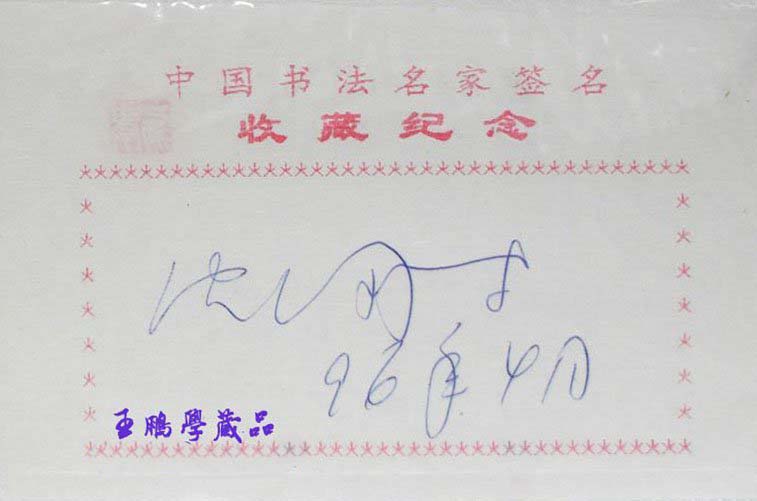 中国书法名家签名
收藏纪念
96年4月
王鹏學藏品